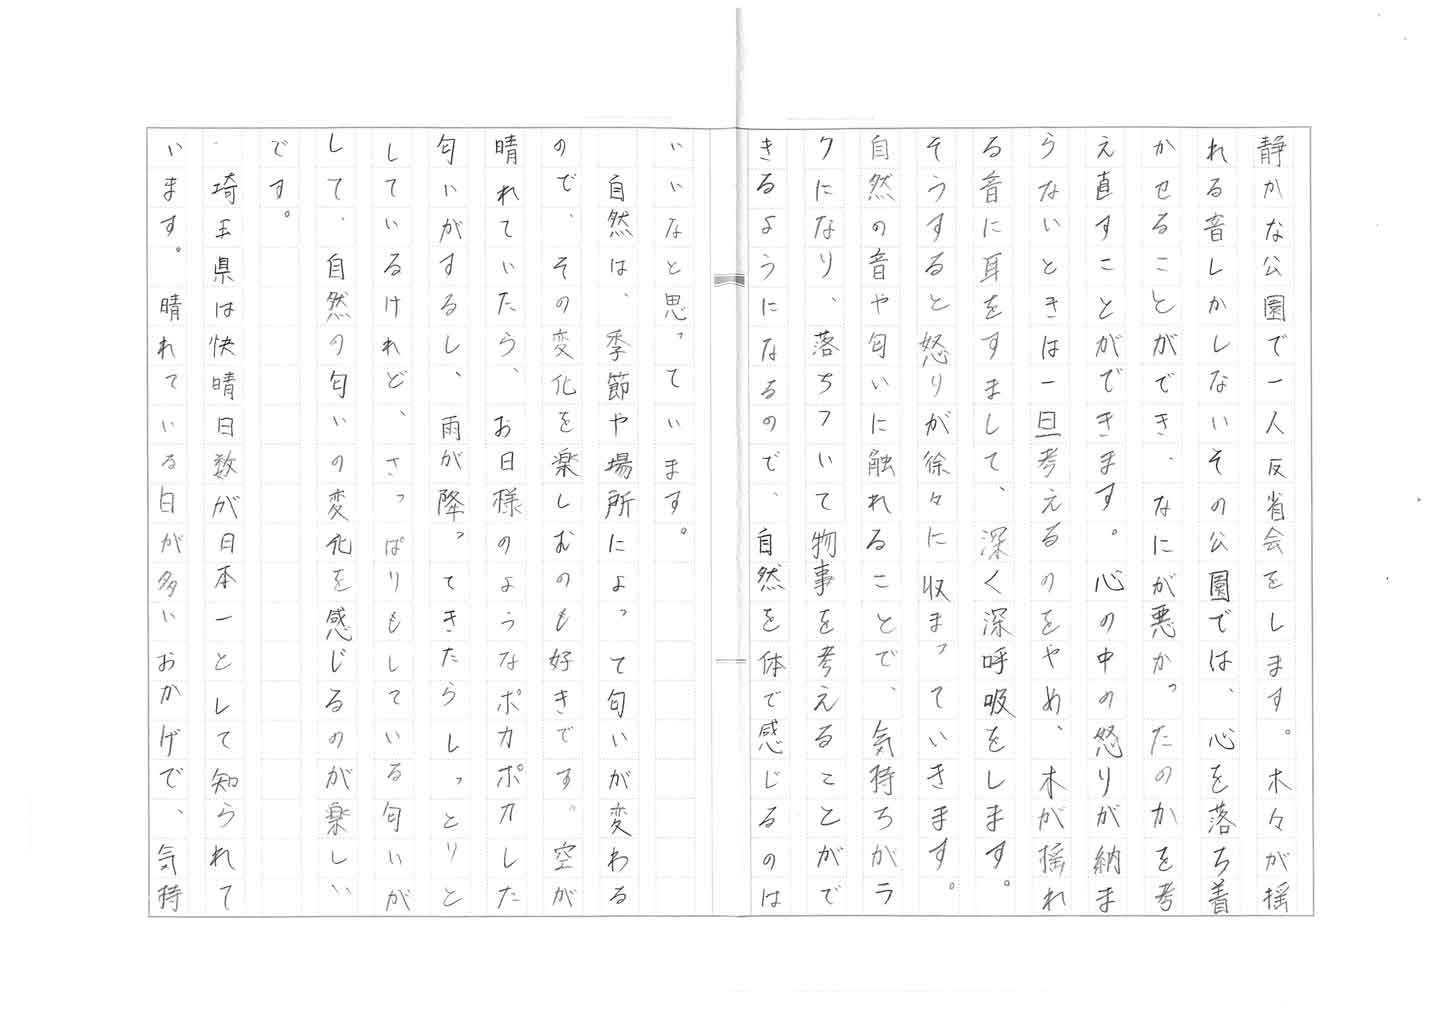 静かな公園で一人反省会をします。木々が揺
れる音しかしないその公園では、心を落ち着
かせることができ、なにが悪かったのかを考
え直すことができます。心の中の怒りが納ま
らないときは一旦考えるのをやめ、木が揺れ
る音に耳をすまして、深く深呼吸をします。
そうすると怒りが徐々に収まっていきます。
自然の音や匂いに触れることで、気持ちがラ
クになり、落ちついて物事を考えることがで
きるようになるので、自然を体で感じるのは
いいなと思っています。
自然は、季節や場所によって匂いが変わる
ので、その変化を楽しむのも好きです。空が
晴れていたら、お日様のようなポカポカした
匂いがするし、雨が降ってきたらしっとりと
しているけれど、さっぱりもしている匂いが
して、自然の匂いの変化を感じるのが楽しい
です。
埼玉県は快晴日数が日本一として知られて
います。晴れている日が多いおかげで、気持